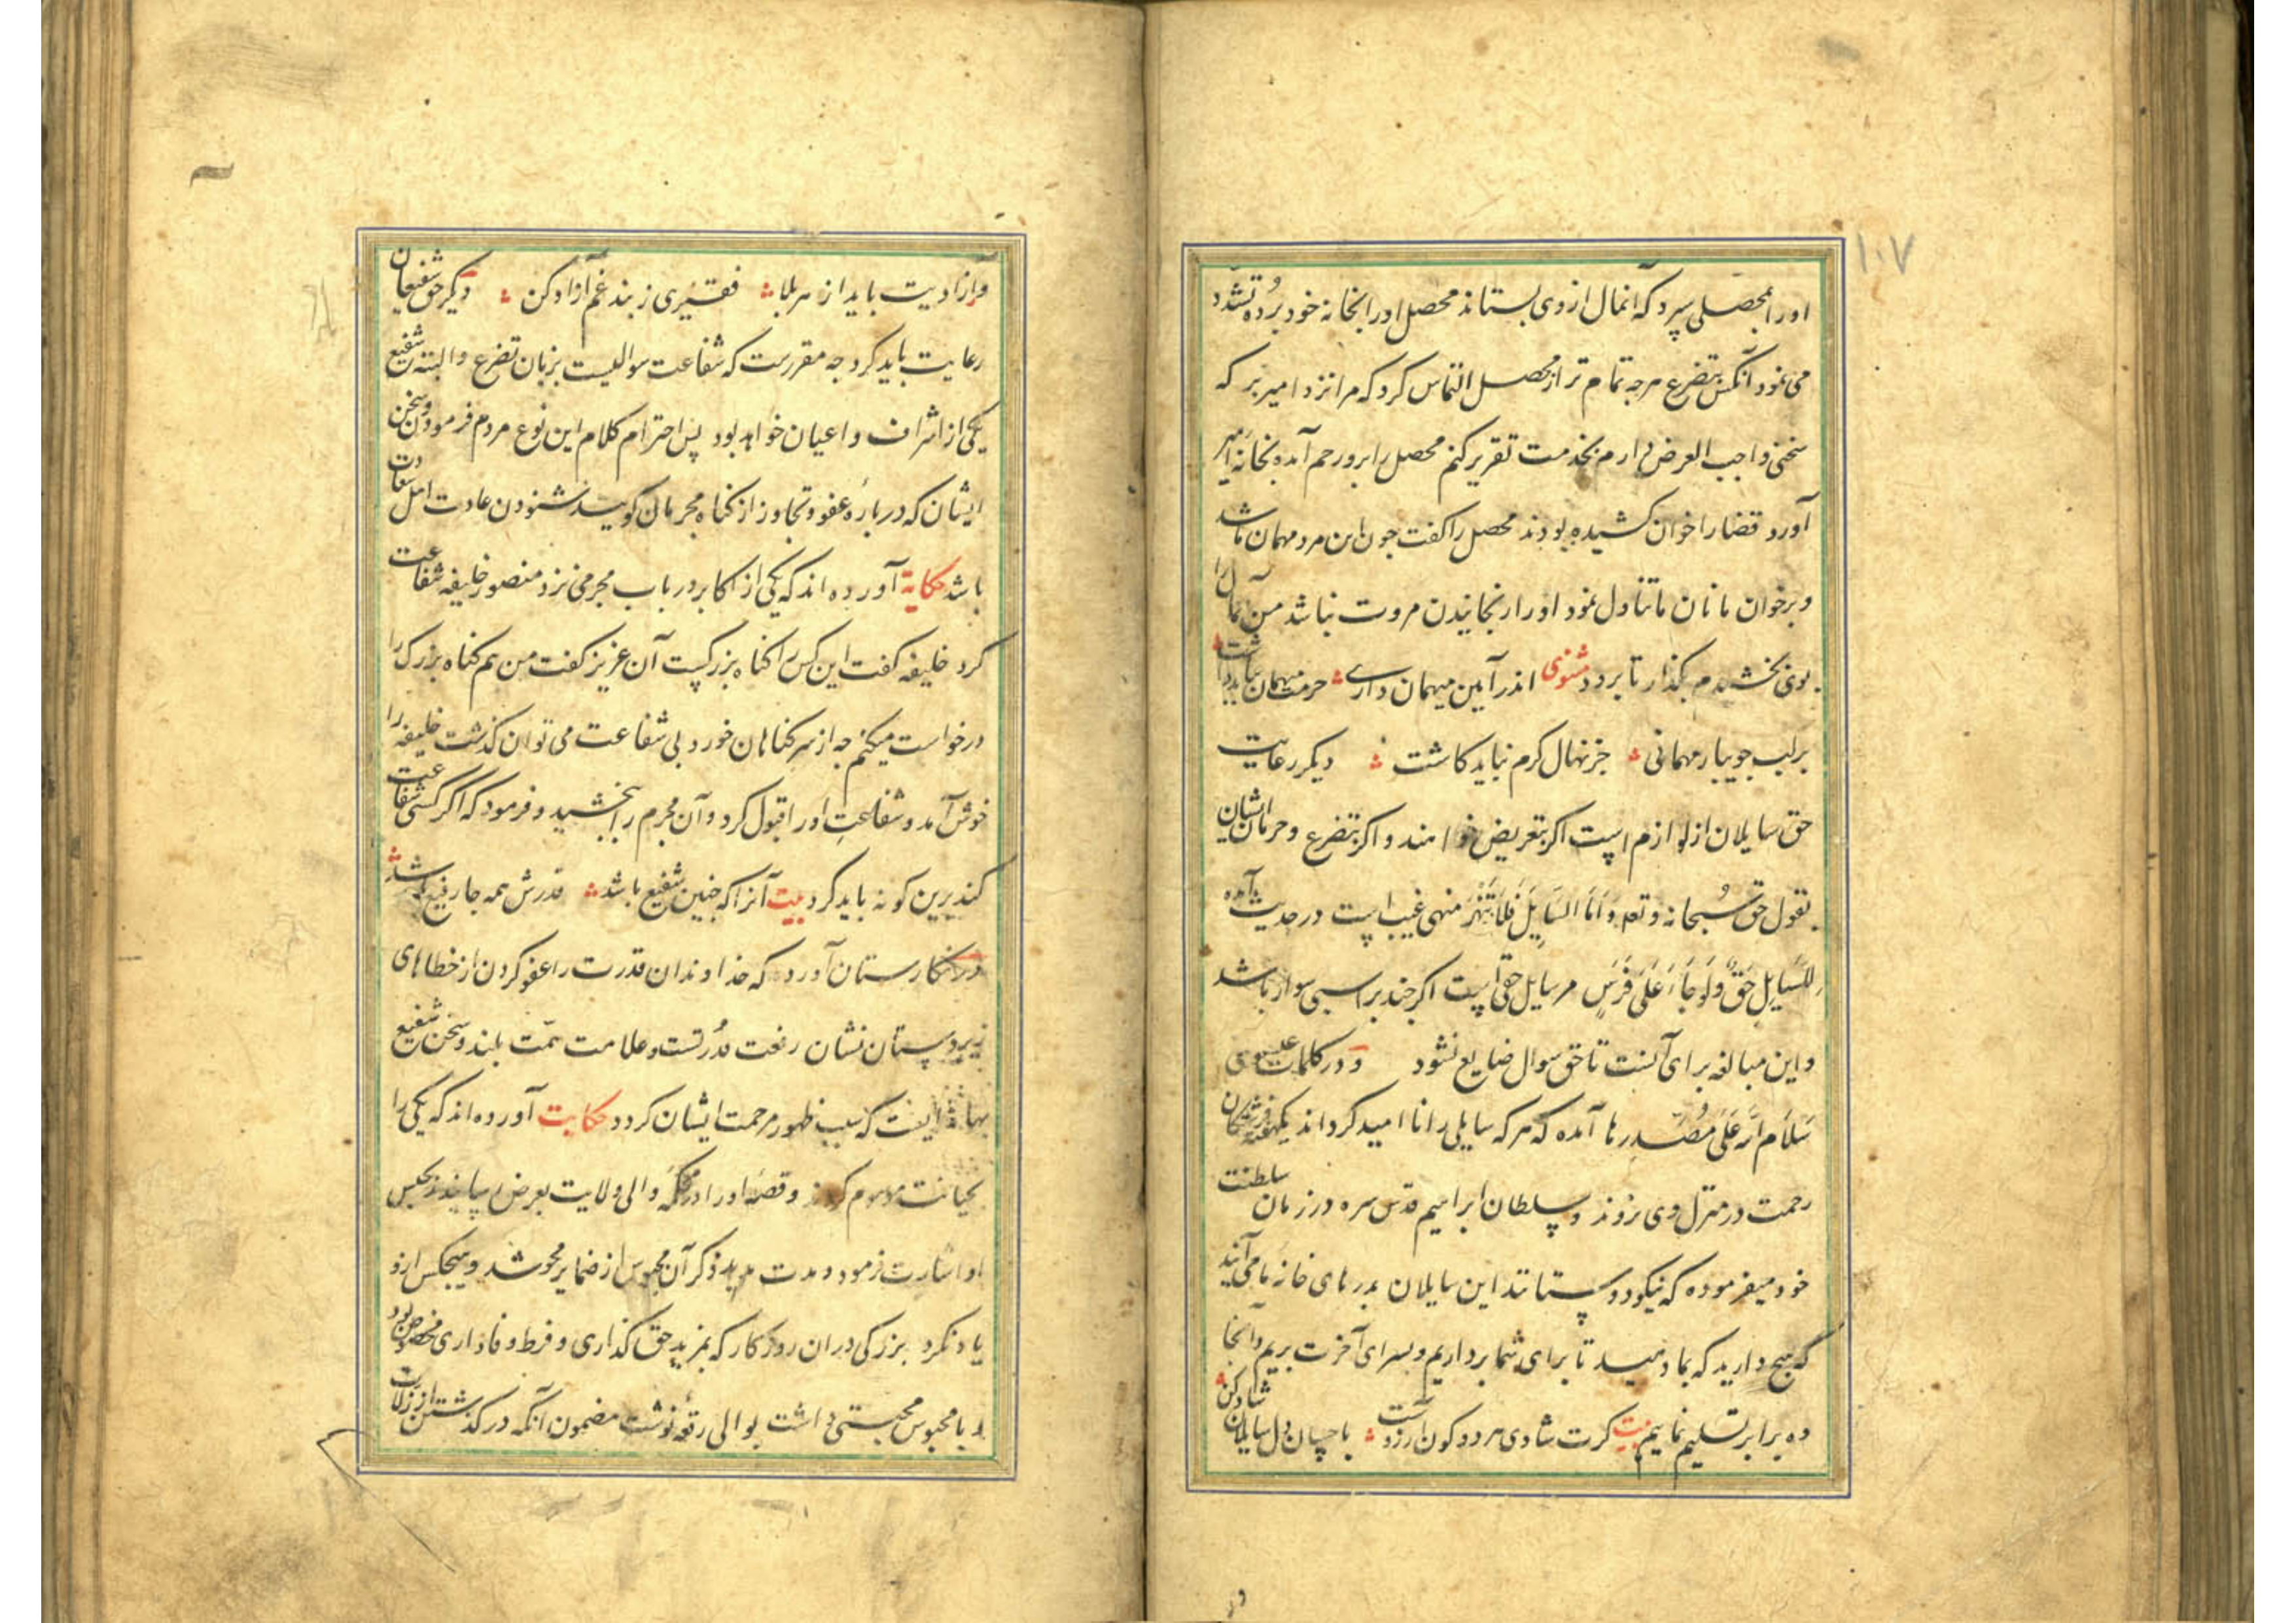 ۱۰۷
اورا بمحصلی سپرد که آنمال از وی بستاند محصل اورا بخانه خود برده تشدد
می نمود آنکس بتضرع هرجه تمام تر از محصل التماس کرد که مرا نزد امیر بر که
سخنی واجب العرض دارم بخدمت تقریر کنم محصل را برو رحم آمده بخانه امیر
آورد قضا را خوان کشیده بودند محصل را کفت جون این مرد مهمان ما شد
و برخوان ما نان ما تناول نمود اورا رنجانیدن مروت نباشد من آنمال را
بوی بخشیدم بکذار تا برود مثنوی اندر آیین میهمان داری حرمت میهمان بباید داشت
برلب جویبار مهمانی جز نهال کرم نباید کاشت دیکر رعایت
حق سایلان از لوازم است اکر بتعریض خواهند و اکر بتضرع و حرمان ایشان
بقول حق سبحانه و تعالی وَاَمَّا السَّایِلَ فَلَا تَنْهَرْ منهی است در حدیث آمده
لِلسَّایِلِ حَقٌّ وَلَوْ جَاءَ عَلَی فَرَسٍ مر سایل را حقی است اکر جند بر اسبی سوار باشد
و این مبالغه برای آنست تا حق سوال ضایع نشود و در کلمات عیسوی
سَلَام الله عَلَی مُصَدِّرها آمده که هر که سایلی را نا امید کرداند یکهفته فرشتکان
رحمت در منزل وی نروند و سلطان ابراهیم قدس سره در زمان سلطنت
خود میفرموده که نیکو دوستانند این سایلان بدرهای خانه ما می آیند
که هیج دارید که بما دهید تا برای شما برداریم و بسرای آخرت بریم و آنجا
ده برابر تسلیم نماییم بیت کرت شادی هر دو کون آرزوست باحسان دل سایلان شاد کن
ور آزادیت باید از هر بلا فقیری ز بند غم آزاد کن دیکر حق شفیعان
رعایت باید کرد جه مقررست که شفاعت سوالیست بزبان تضرع والبته شفیع
یکی از اشراف و اعیان خواهد بود پس احترام کلام این نوع مردم فرمودن و سخن
ایشان که درباره عفو و تجاوز از کناه مجرمان کویند شنودن عادت اهل سعادت
باشد حکایة آورده اند که یکی از اکابر در باب مجرمی نزد منصور خلیفه شفاعت
کرد خلیفه کفت این کس را کناه بزرکست آن عزیز کفت من هم کناه بزرک را
درخواست میکنم جه از سر کناهان خورد بی شفاعت می توان کذشت خلیفه را
خوش آمد و شفاعت اورا قبول کرد و آن مجرم را ببخشید و فرمود که اکر کسی شفاعت
کند برین کونه باید کرد بیت آنرا که جنین شفیع باشد قدرش همه جا رفیع باشد
در نکارستان آورده که خداوندان قدرت را عفو کردن از خطاهای
زیردستان نشان رفعت قدرتست و علامت همت بلند و سخن شفیع
بهانه ایست که سبب ظهور مرحمت ایشان کردد حکایت آورده اند که یکی را
بخیانت موسوم کردند و قصه اورا در محکمه والی ولایت بعرض رسانیدند بحبس
او اشارت فرمود و مدت مدید ذکر آن محبوس از ضمایر محو شد و هیجکس ازو
یاد نکرد بزرکی دران روزکار که بمزید حق کذاری و فرط وفاداری مخصوص بود
و با محبوس محبتی داشت بوالی رقعه نوشت مضمون آنکه در کذشتن از زلات